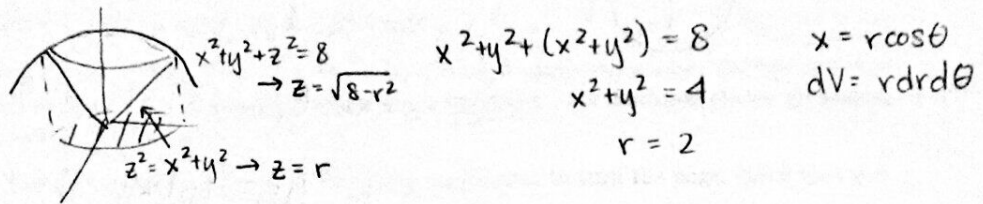 x²+y²+z²=8
→ z=√8-r²
z²=x²+y² → z=r
x²+y²+(x²+y²) = 8
x²+y² = 4
r = 2
x = rcosθ
dV= rdrdθ